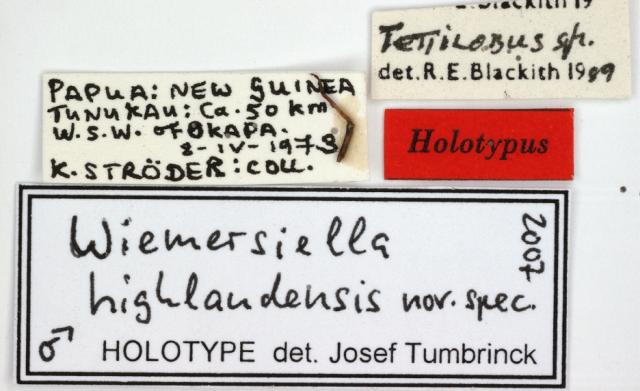 Blackith 19
Tettilobus sp.
det. R. E. Blackith 1989
PAPUA: NEW GUINEA
TUNUKAU: Ca. 50 km
W.S.W. of OKAPA.
2-IV-1973
K. STRÖDER: COLL.
Holotypus
Wiemersiella
highlandensis nov. spec.
2007
♂ HOLOTYPE det. Josef Tumbrinck